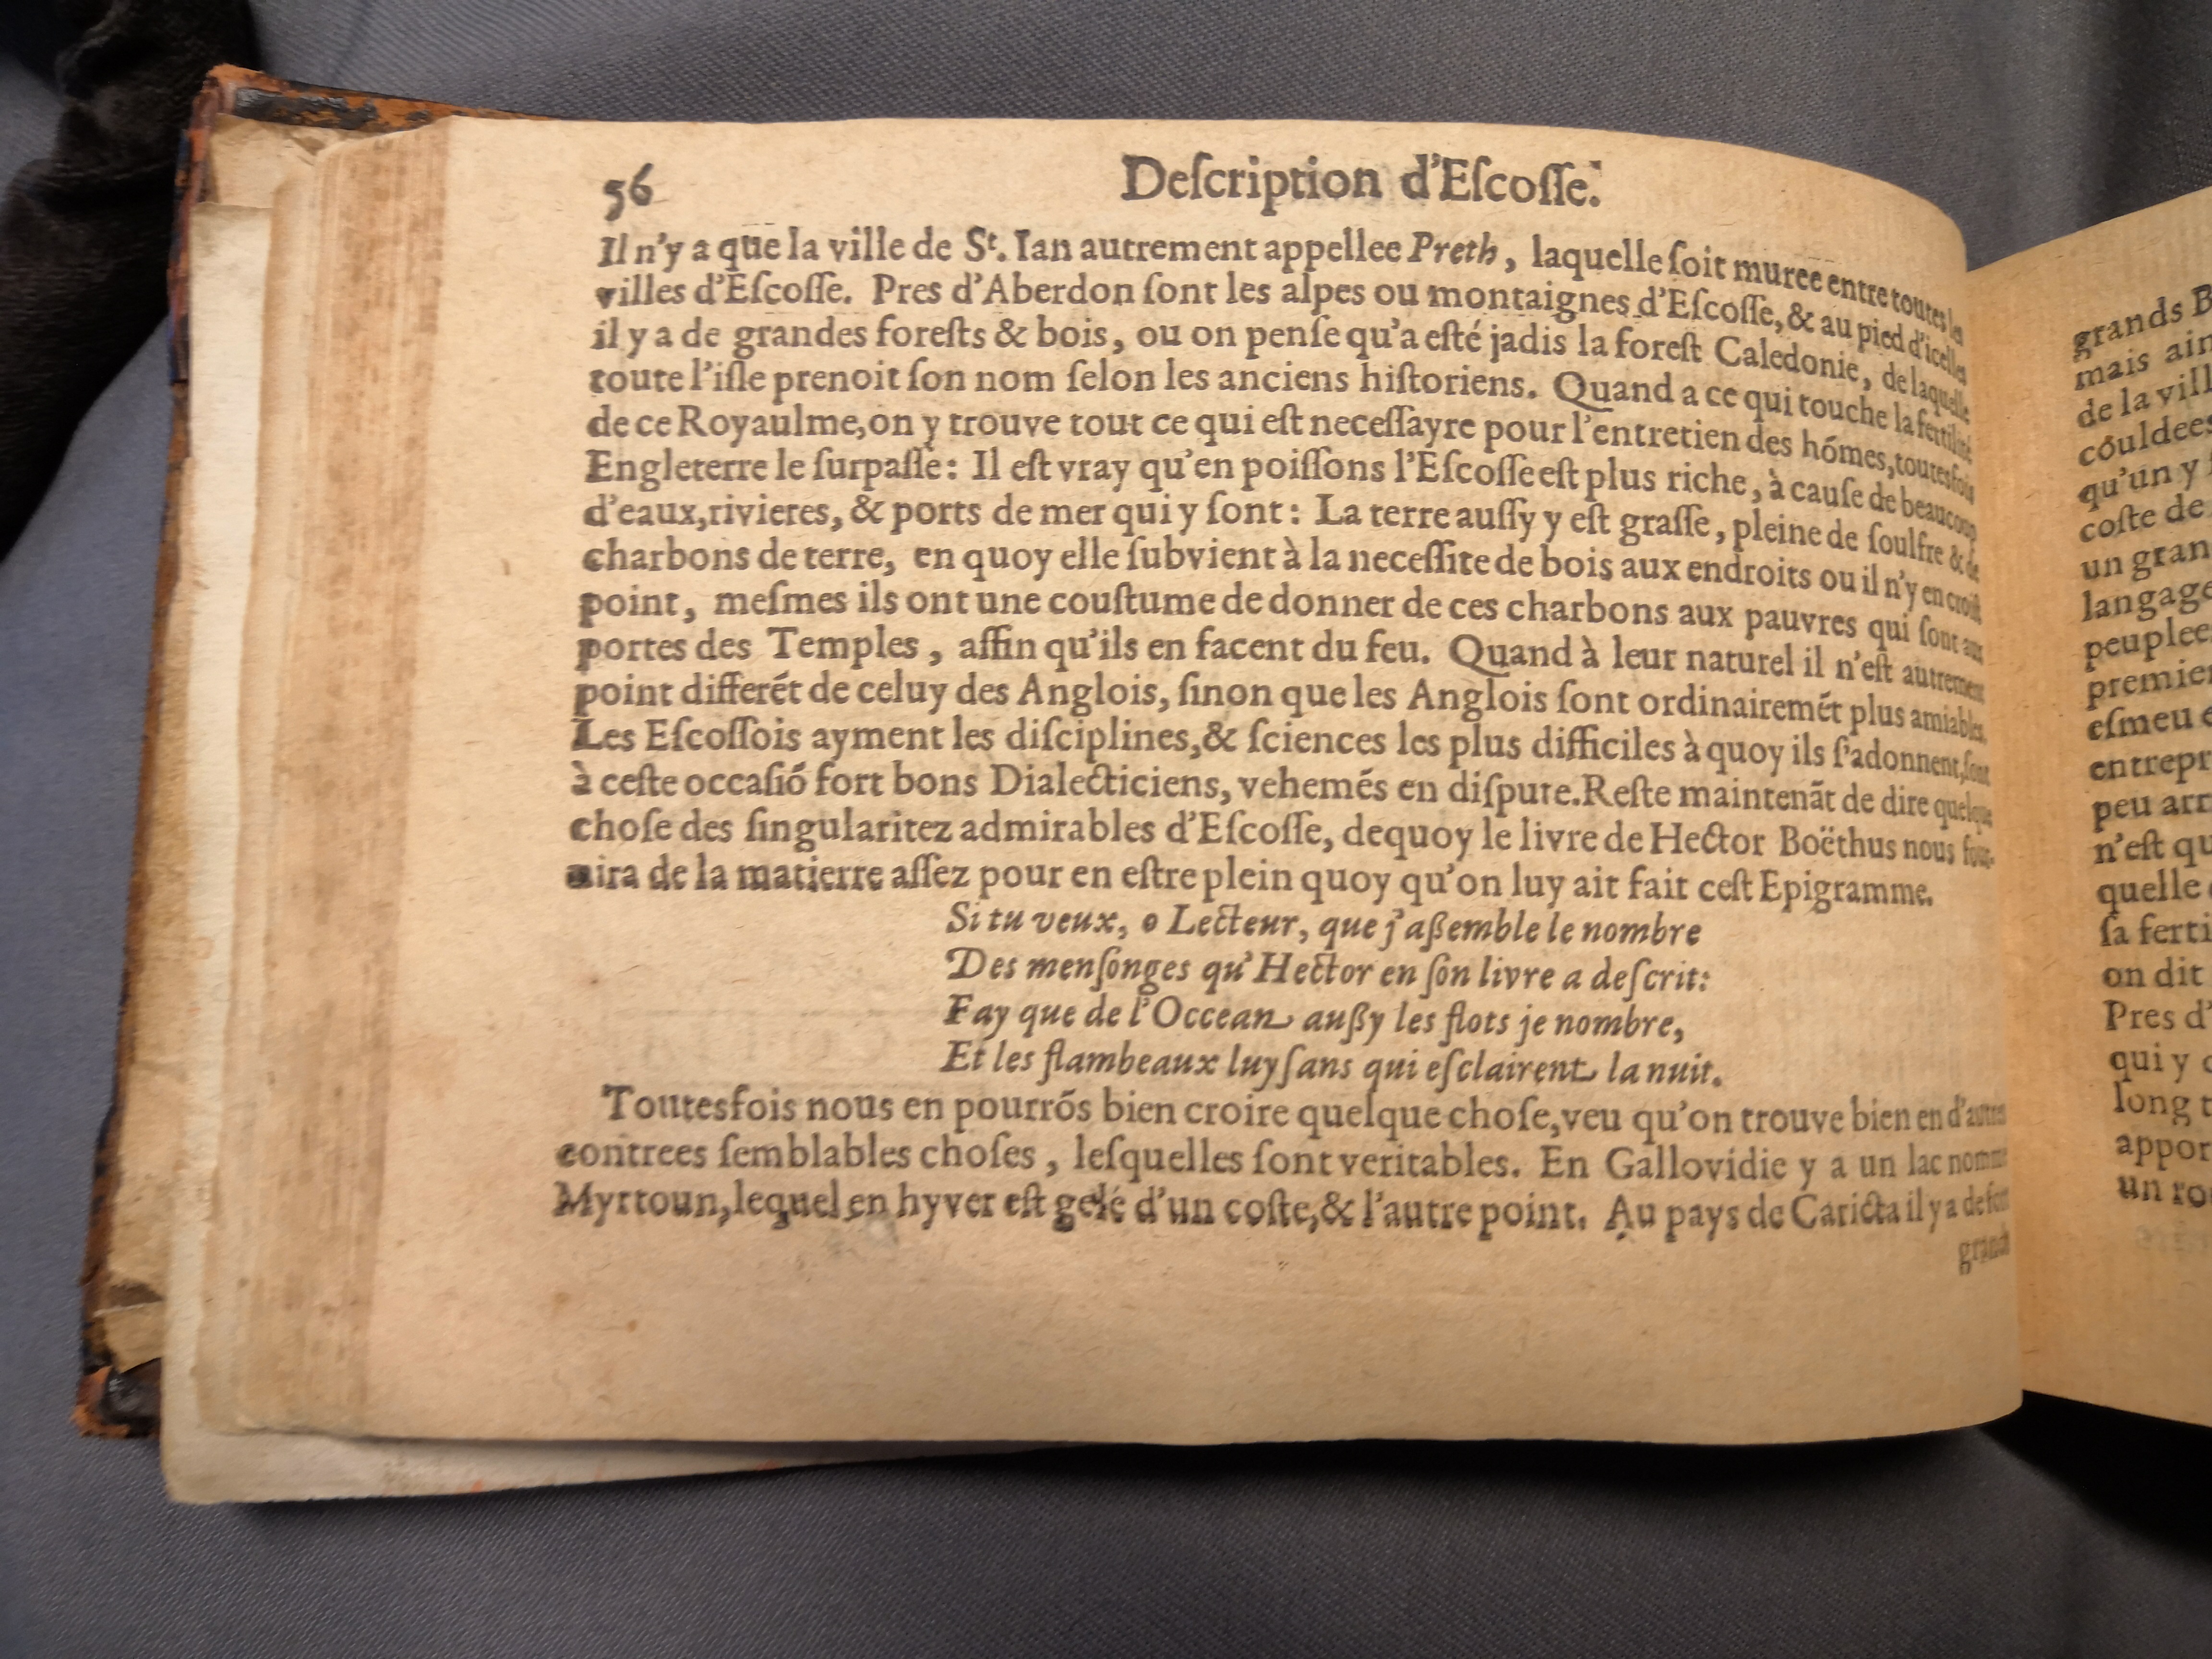 56
Deſcription d'Eſcoſſe.
Il n'y a que la ville de St. Ian autrement appellee Preth, laquelle ſoit muree entre toutes les
villes d'Eſcoſſe. Pres d'Aberdon ſont les alpes ou montaignes d'Eſcoſſe, & au pied d'icelles
il y a de grandes foreſts & bois, ou on penſe qu'a eſté jadis la foreſt Caledonie, de laquelle
toute l'iſle prenoit ſon nom ſelon les anciens hiſtoriens. Quand a ce qui touche la fertilité
de ce Royaulme, on y trouve tout ce qui eſt neceſſayre pour l'entretien des hómes, toutesfois
Engleterre le ſurpaſſe: Il eſt vray qu'en poiſſons l'Eſcoſſe eſt plus riche, à cauſe de beaucoup
d'eaux, rivieres, & ports de mer qui y ſont: La terre auſſy y eſt graſſe, pleine de ſoulfre & de
charbons de terre, en quoy elle ſubvient à la neceſſite de bois aux endroits ou il n'y en croiſt
point, meſmes ils ont une couſtume de donner de ces charbons aux pauvres qui ſont aux
portes des Temples, affin qu'ils en facent du feu. Quand à leur naturel il n'eſt autrement
point differét de celuy des Anglois, ſinon que les Anglois ſont ordinairemét plus amiables.
Les Eſcoſſois ayment les diſciplines, & ſciences les plus difficiles à quoy ils ſ'adonnent, ſont
à ceſte occaſió fort bons Dialecticiens, vehemés en diſpute. Reſte maintenāt de dire quelque
choſe des ſingularitez admirables d'Eſcoſſe, dequoy le livre de Hector Boëthus nous four-
nira de la matierre aſſez pour en eſtre plein quoy qu'on luy ait fait ceſt Epigramme.
Si tu veux, o Lecteur, que j'aßemble le nombre
Des menſonges qu'Hector en ſon livre a deſcrit:
Fay que de l'Occean außy les flots je nombre,
Et les flambeaux luyſans qui eſclairent la nuit.
Toutesfois nous en pourrós bien croire quelque choſe, veu qu'on trouve bien en d'autres
contrees ſemblables choſes, leſquelles ſont veritables. En Gallovidie y a un lac nommé
Myrtoun, lequel en hyver eſt gelé d'un coſte, & l'autre point. Au pays de Caricta il y a de fort
grands
grands
mais
de la
couldees
qu'un y
coſte de
un gran
langage
peuplee
premier
eſmeu
entrepr
peu arr
n'eſt qu
quelle
ſa ferti
on dit
Pres d'
qui y
long
appor
un